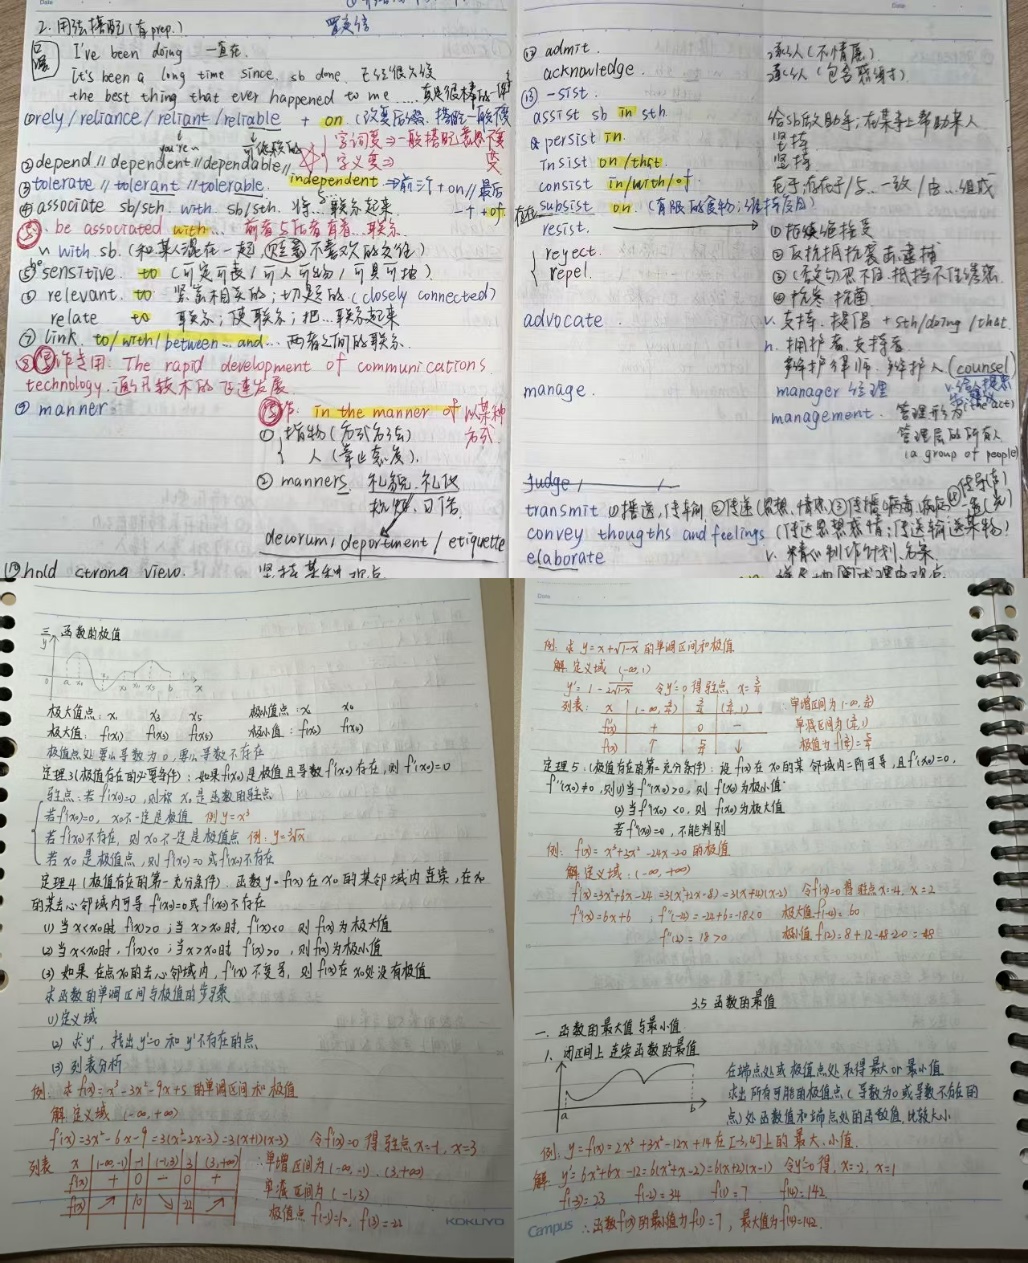 2. 用法搭配(有prep.)
I've been doing 一直在.
It's been a long time since. sb done. 已经很久没
the best thing that ever happened to me
①rely/reliance/reliant/reliable + on
字词变⇒一般搭配意思不变
字义变⇒ 变
②depend // dependent // dependable // independent
③tolerate // tolerant // tolerable. ⇒前三个+on//最后一个+of
④associate sb/sth. with sb/sth. 将…联系起来
be associated with…
~ with sb.
⑤ sensitive to
⑥ relevant. to 紧密相关的;切题的(closely connected)
relate to 联系;使联系;把…联系起来
⑦ link. to/with/between…and… 两者之间的联系.
⑧ 作专用: The rapid development of communications
technology. 通讯技术的飞速发展.
⑨ manner 作: in the manner of 以某种方式
① 指物(方式方法)
人(举止态度).
② manners 礼貌. 礼仪
习俗
decorum/deportment/etiquette
⑩hold strong view. 坚持某种观点
⑫ admit. 承认(不情愿)
acknowledge.
⑬ -sist.
assist sb in sth 给sb做助手;在某事上帮助某人
persist in. 坚持
insist on/that. 坚持
consist in/with/of. 在于/与…一致/由…组成
subsist on. (有限的食物;维持度日)
resist. ① 拒绝接受
reject. ② 反抗抵抗袭击逮捕
repel. ③
④ 抗寒 抗菌
advocate. v. 支持. 提倡 + sth/doing/that.
n. 拥护者. 支持者
辩护律师. 辩护人 (counsel)
manage. manager 经理
management. 管理 (the act)
管理层的所有人
(a group of people)
judge
transmit ①播送,传输 ②传递(思想、情感)
convey thougths and feelings (传达思想感情;传送输送某物)
elaborate v. 精心制作计划.
三 函数的极值
极大值点: x₁ x₃ x₅ 极小值点: x₂ x₄
极大值: f(x₁) f(x₃) f(x₅) 极小值: f(x₂) f(x₄)
极值点处要么导数为0,要么导数不存在
定理3(极值存在的必要条件):如果f(x₀)是极值且导数f'(x₀)存在,则f'(x₀)=0
驻点:若f'(x₀)=0,则称x₀是函数的驻点
若f'(x₀)=0, x₀不一定是极值 例y=x³
若f'(x₀)不存在,则x₀不一定是极值点 例:y=³√x
若x₀是极值点,则f'(x₀)=0或f'(x₀)不存在
定理4(极值存在的第一充分条件). 函数y=f(x)在x₀的某邻域内连续,在x₀
的某去心邻域内可导 f'(x₀)=0或f'(x₀)不存在
(1) 当x<x₀时f'(x)>0;当x>x₀时,f'(x)<0 则f(x₀)为极大值
(2) 当x<x₀时,f'(x)<0;当x>x₀时 f'(x)>0,则f(x₀)为极小值
(3) 如果在点x₀的去心邻域内,f'(x)不变号,则f(x)在x₀处没有极值
求函数的单调区间与极值的步骤
(1)定义域
(2) 求y',找出y'=0和y'不存在的点
(3) 列表分析
例:求f(x)=x³-3x²-9x+5的单调区间和极值
解 定义域 (-∞,+∞)
f'(x)=3x²-6x-9=3(x²-2x-3)=3(x+1)(x-3) 令f'(x)=0 得驻点x=-1,x=3
列表 x (-∞,-1) -1 (-1,3) 3 (3,+∞) ∴单增区间为(-∞,-1).(3,+∞)
f'(x) + 0 - 0 + 单减区间为(-1,3)
f(x) ↗ 10 ↘ -22 ↗ 极值点f(-1)=10, f(3)=-22
KOKUYO
例: 求y=x+√1-x 的单调区间和极值
解 定义域 (-∞,1)
y'=1-1/2√1-x 令y'=0 得驻点 x=3/4
列表: x (-∞,3/4) 3/4 (3/4,1) 单增区间为(-∞,3/4)
f'(x) + 0 - 单减区间为(3/4,1)
f(x) ↑ 5/4 ↓ 极值为f(3/4)=5/4
定理5:(极值存在的第二充分条件):设f(x)在x₀的某邻域内二阶可导,且f'(x₀)=0,
f''(x₀)≠0,则(1)当f''(x₀)>0,则f(x₀)为极小值
(2)当f''(x₀)<0,则f(x₀)为极大值
若f''(x₀)=0,不能判别
例: f(x)=x³+3x²-24x-20的极值
解 定义域:(-∞,+∞)
f'(x)=3x²+6x-24=3(x²+2x-8)=3(x+4)(x-2) 令f'(x)=0得驻点x=-4, x=2
f''(x)=6x+6 ; f''(-4)=-24+6=-18<0 极大值f(-4)=60
f''(2)=18>0 极小值f(2)=8+12-48-20=-48
3.5 函数的最值
一. 函数的最大值与最小值
1. 闭区间上连续函数的最值
在端点处或极值点处取得最大or最小值
求出所有可能的极值点(导数为0或导数不存在的
点)处函数值和端点处的函数值,比较大小
例: y=f(x)=2x³+3x²-12x+14在[-3,4]上的最大、小值.
解 y'=6x²+6x-12=6(x²+x-2)=6(x+2)(x-1) 令y'=0得,x=2, x=1
f(-3)=23 f(-2)=34 f(1)=7 f(4)=142
∴函数f(x)的最小值为f(1)=7, 最大值为f(4)=142.
Campus